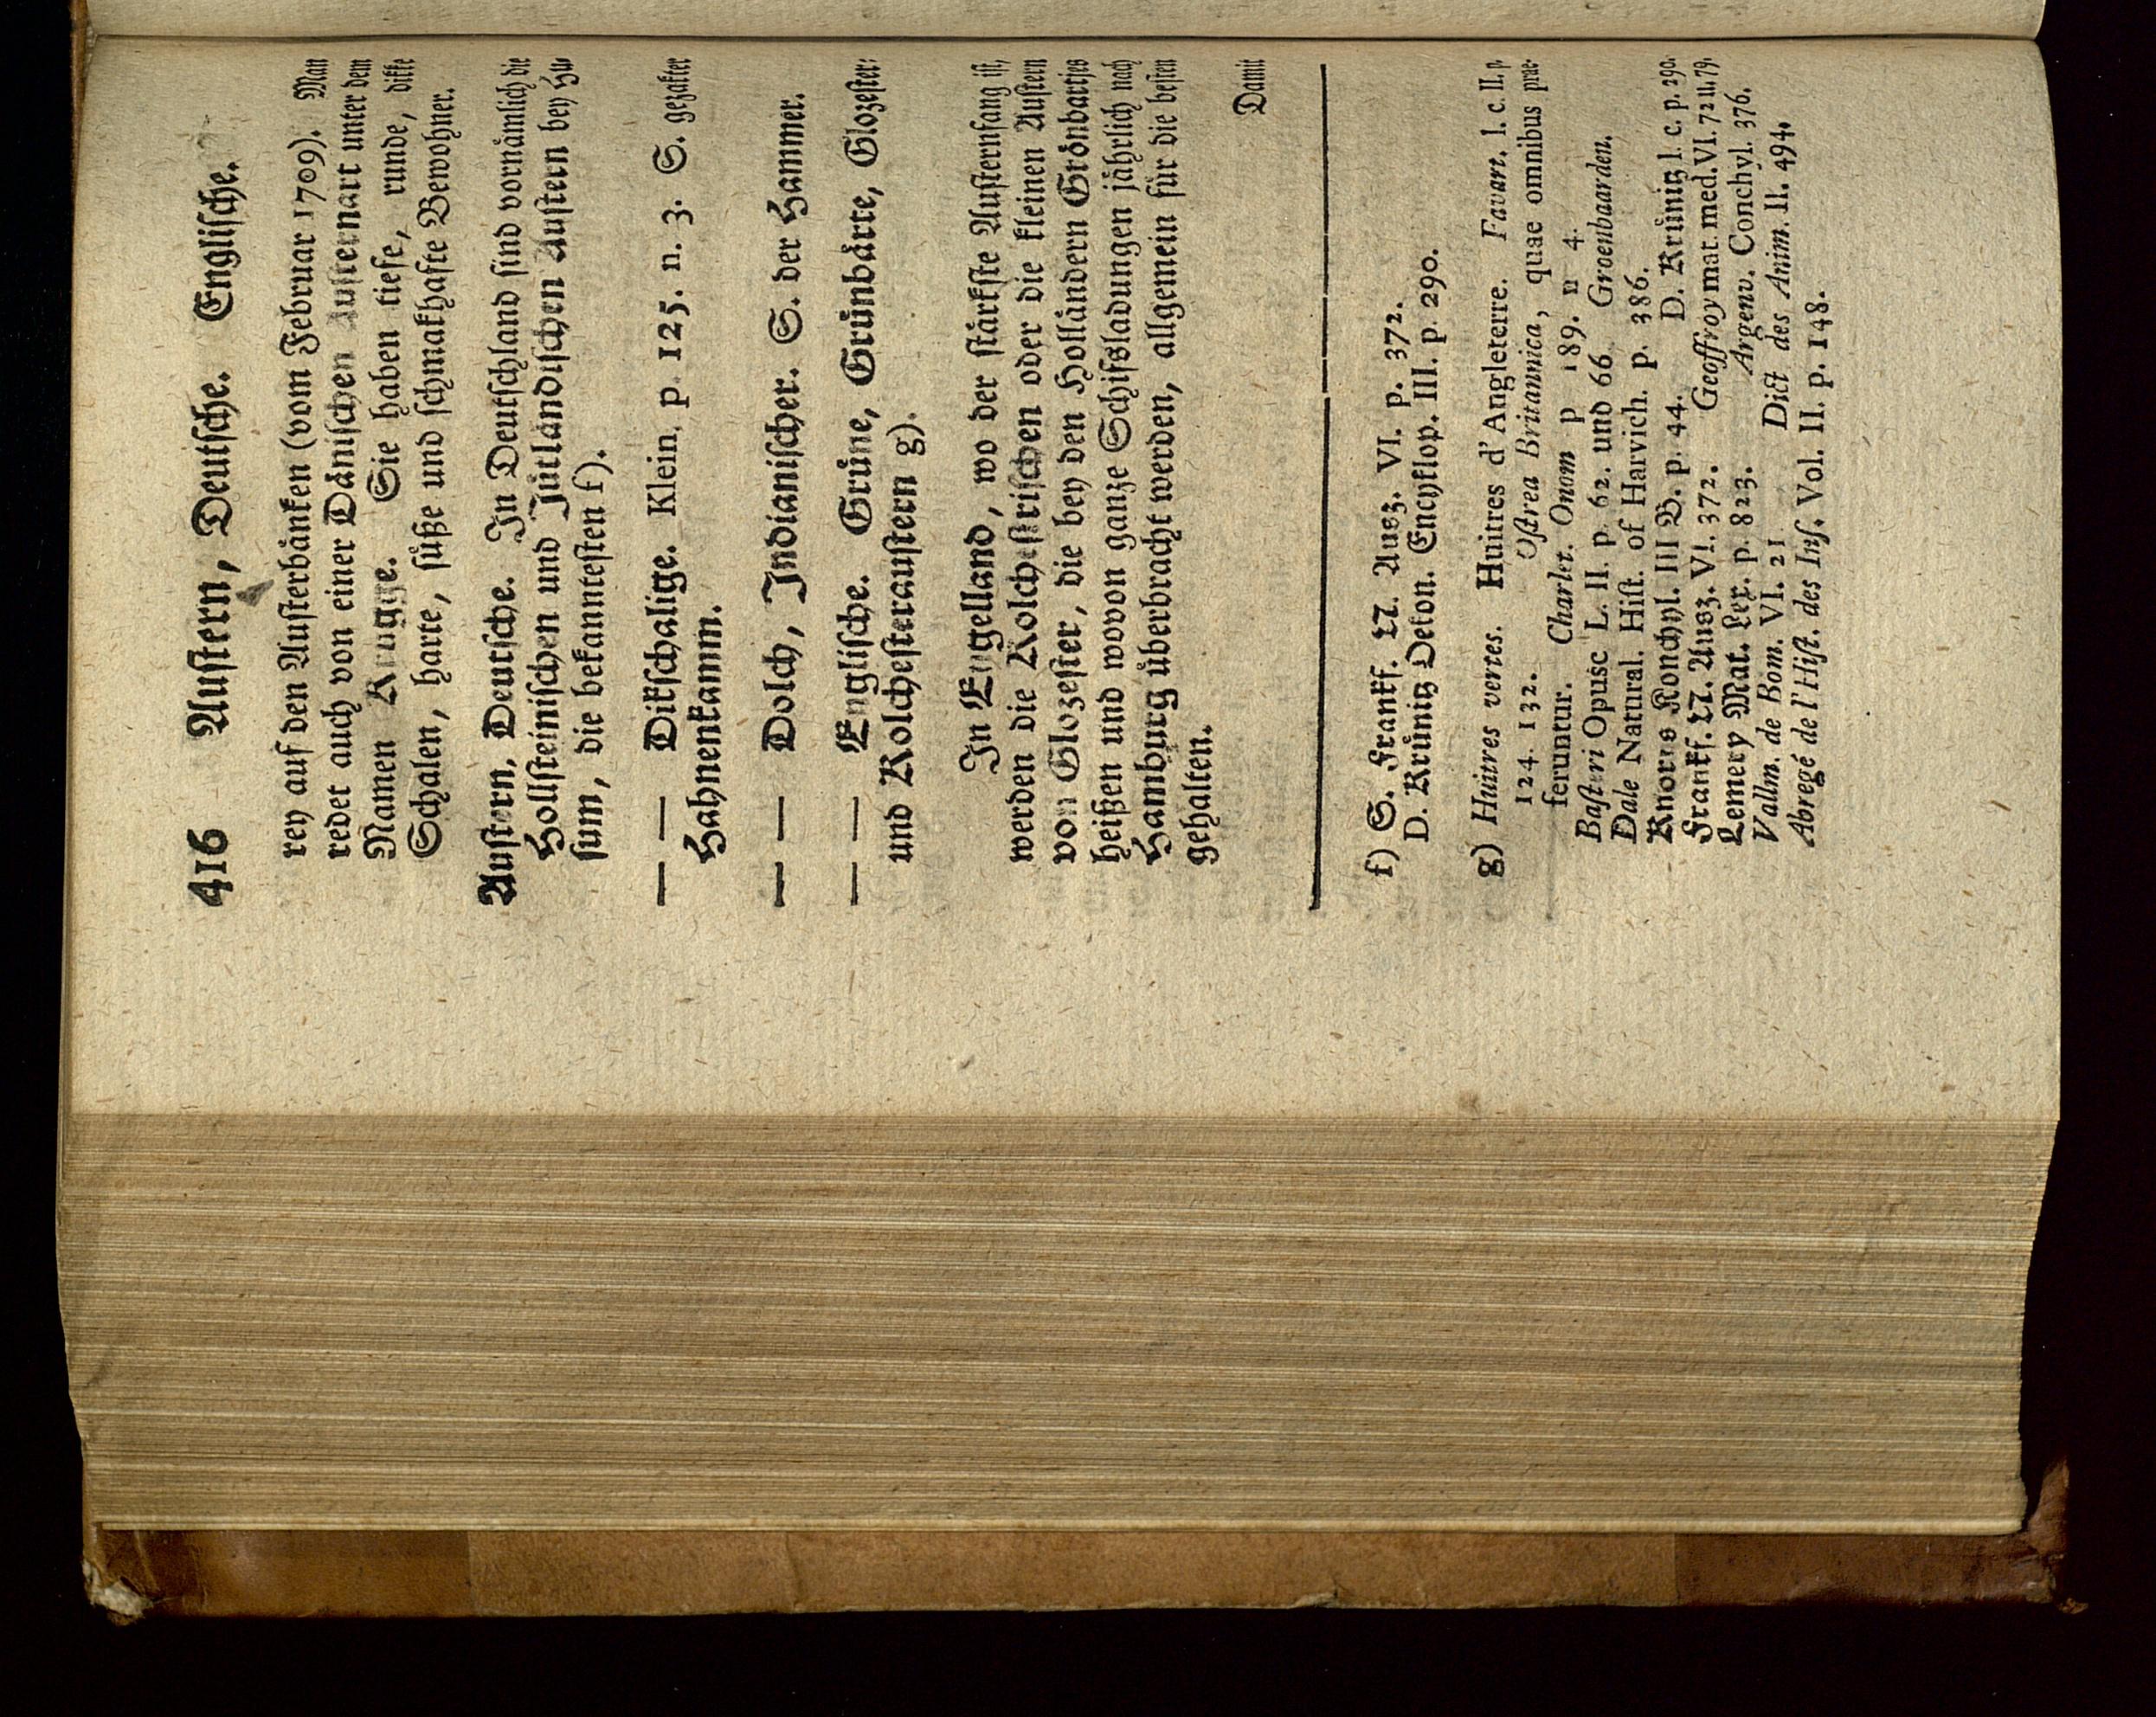 416 Austern, Deutsche. Englische.
rey auf den Austerbånken (vom Februar 1709). Man
redet auch von einer Dånischen Austernart unter dem
Namen Krugge. Sie haben tiefe, runde, dikke
Schalen, harte, sůße und schmakhafte Bewohner.
Austern, Deutsche. In Deutschland sind vornåmlich die
Hollsteinischen und Jůtlåndischen Austern bey Hu
sum, die bekanntesten f).
— — Dikschalige. Klein, p. 125. n. 3. S. gezakter
Hahnenkamm.
— — Dolch, Indianischer. S. der Hammer.
— — Englische. Grůne, Grůnbårte, Glozester:
und Kolchesteraustern g).
In Engelland, wo der stårkste Austernfang ist,
werden die Kolchestrischen oder die kleinen Austern
von Glozester, die bey den Hollåndern Grônbartjes
heißen und wovon ganze Schifsladungen jåhrlich nach
Hamburg ůberbracht werden, allgemein fůr die besten
gehalten.
Damit
f) S. Frankf. N. Ausz. VI. p. 372.
D. Krůnitz Oekon. Encyklop. III. p. 290.
g) Huitres vertes. Huitres d'Angleterre. Favart. l. c. II. p.
124. 132. Ostrea Britannica, quae omnibus prae-
feruntur. Charlet. Onom p 189. n 4.
Basteri Opusc L. II. p. 62. und 66 Groenbaarden.
Dale Natural. Hist. of Harvich. p. 386.
Knorrs Konchyl. III B. p. 44. D. Krůnitz l. c. p. 290.
Frankf. N. Ausz. VI. 372. Geoffroy mat. med. VI. 72 u. 79.
Lemery Mat. Lex. p. 823. Argenv. Conchyl. 376.
Vallm. de Bom. VI. 21 Dict des Anim. II. 494.
Abregé de l'Hist. des Ins. Vol. II. p. 148.